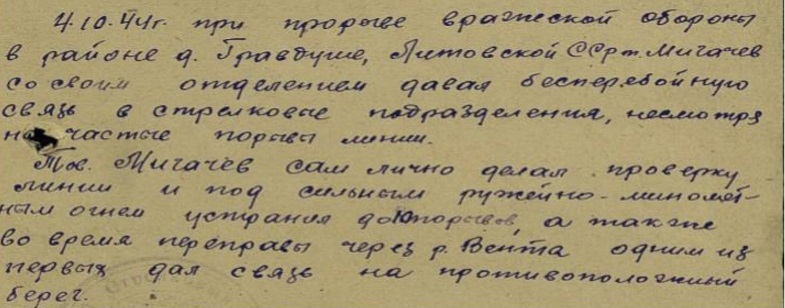 4.10.44г. при прорыве вражеской обороны
в районе д. Гравдуше, Литовской ССР т. Мигачев
со своим отделением давал бесперебойную
связь в стрелковые подразделения, несмотря
на частые порывы линии.
Тов. Мигачев сам лично делал проверку
линии и под сильным ружейно-миномет-
ным огнем устранил до 10 порывов, а также
во время переправы через р. Вента одним из
первых дал связь на противоположный
берег.